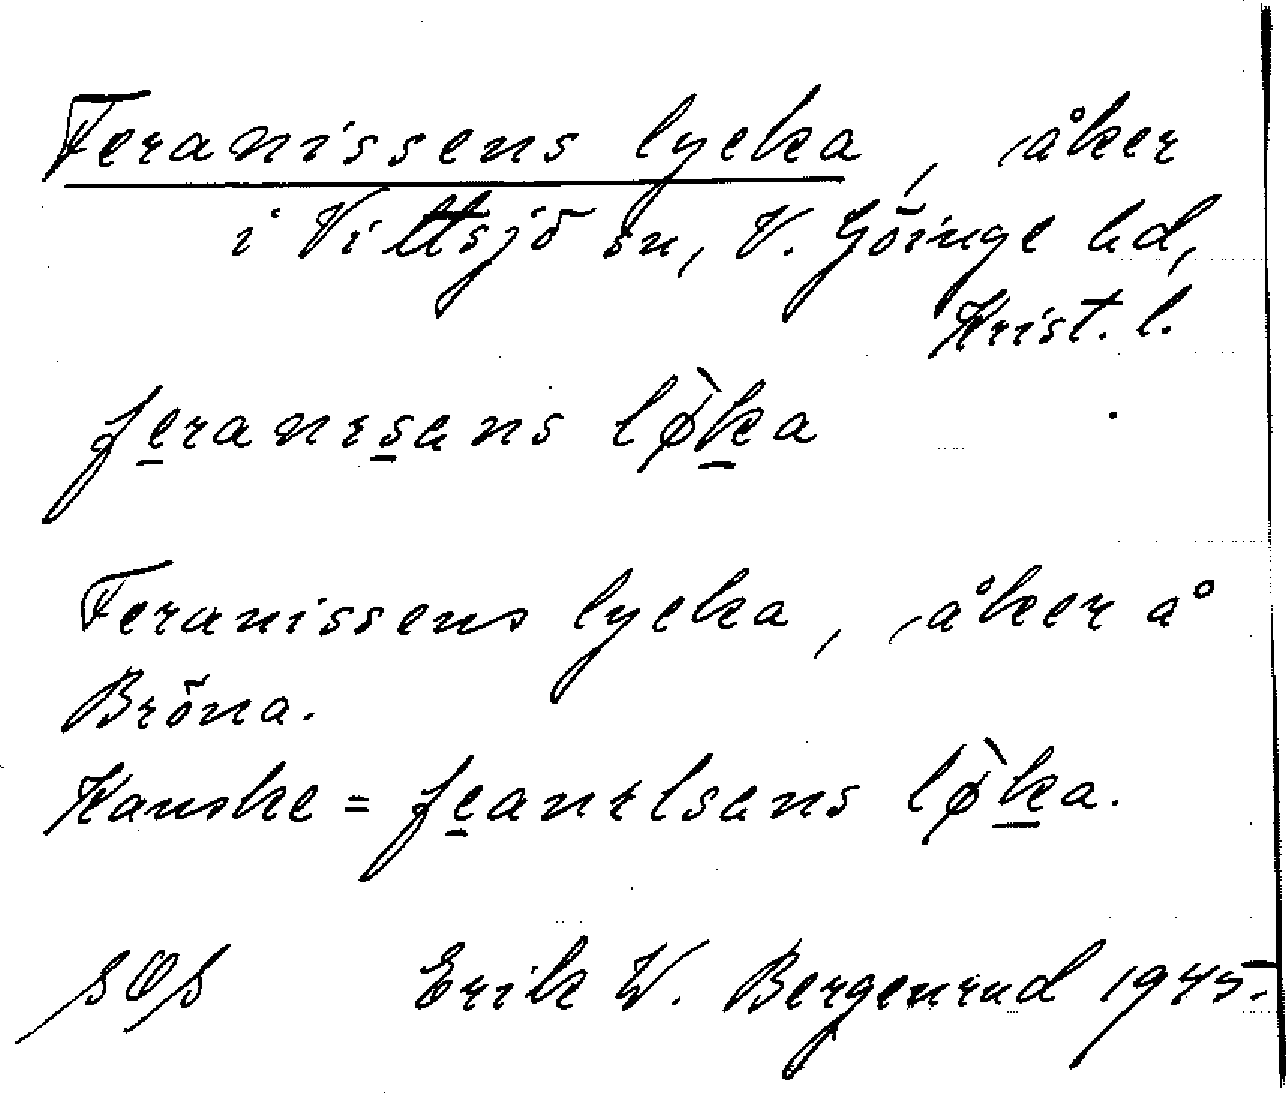 Feranissens lycka, åker
i Vittsjö sn, V. Göinge hd,
Krist. l.
feranısans lø̀ka
Feranissens lycka, åker å
Bröna.
Kanske = feanılsans lø̀ka.
Erik W. Bergenrud 1945.